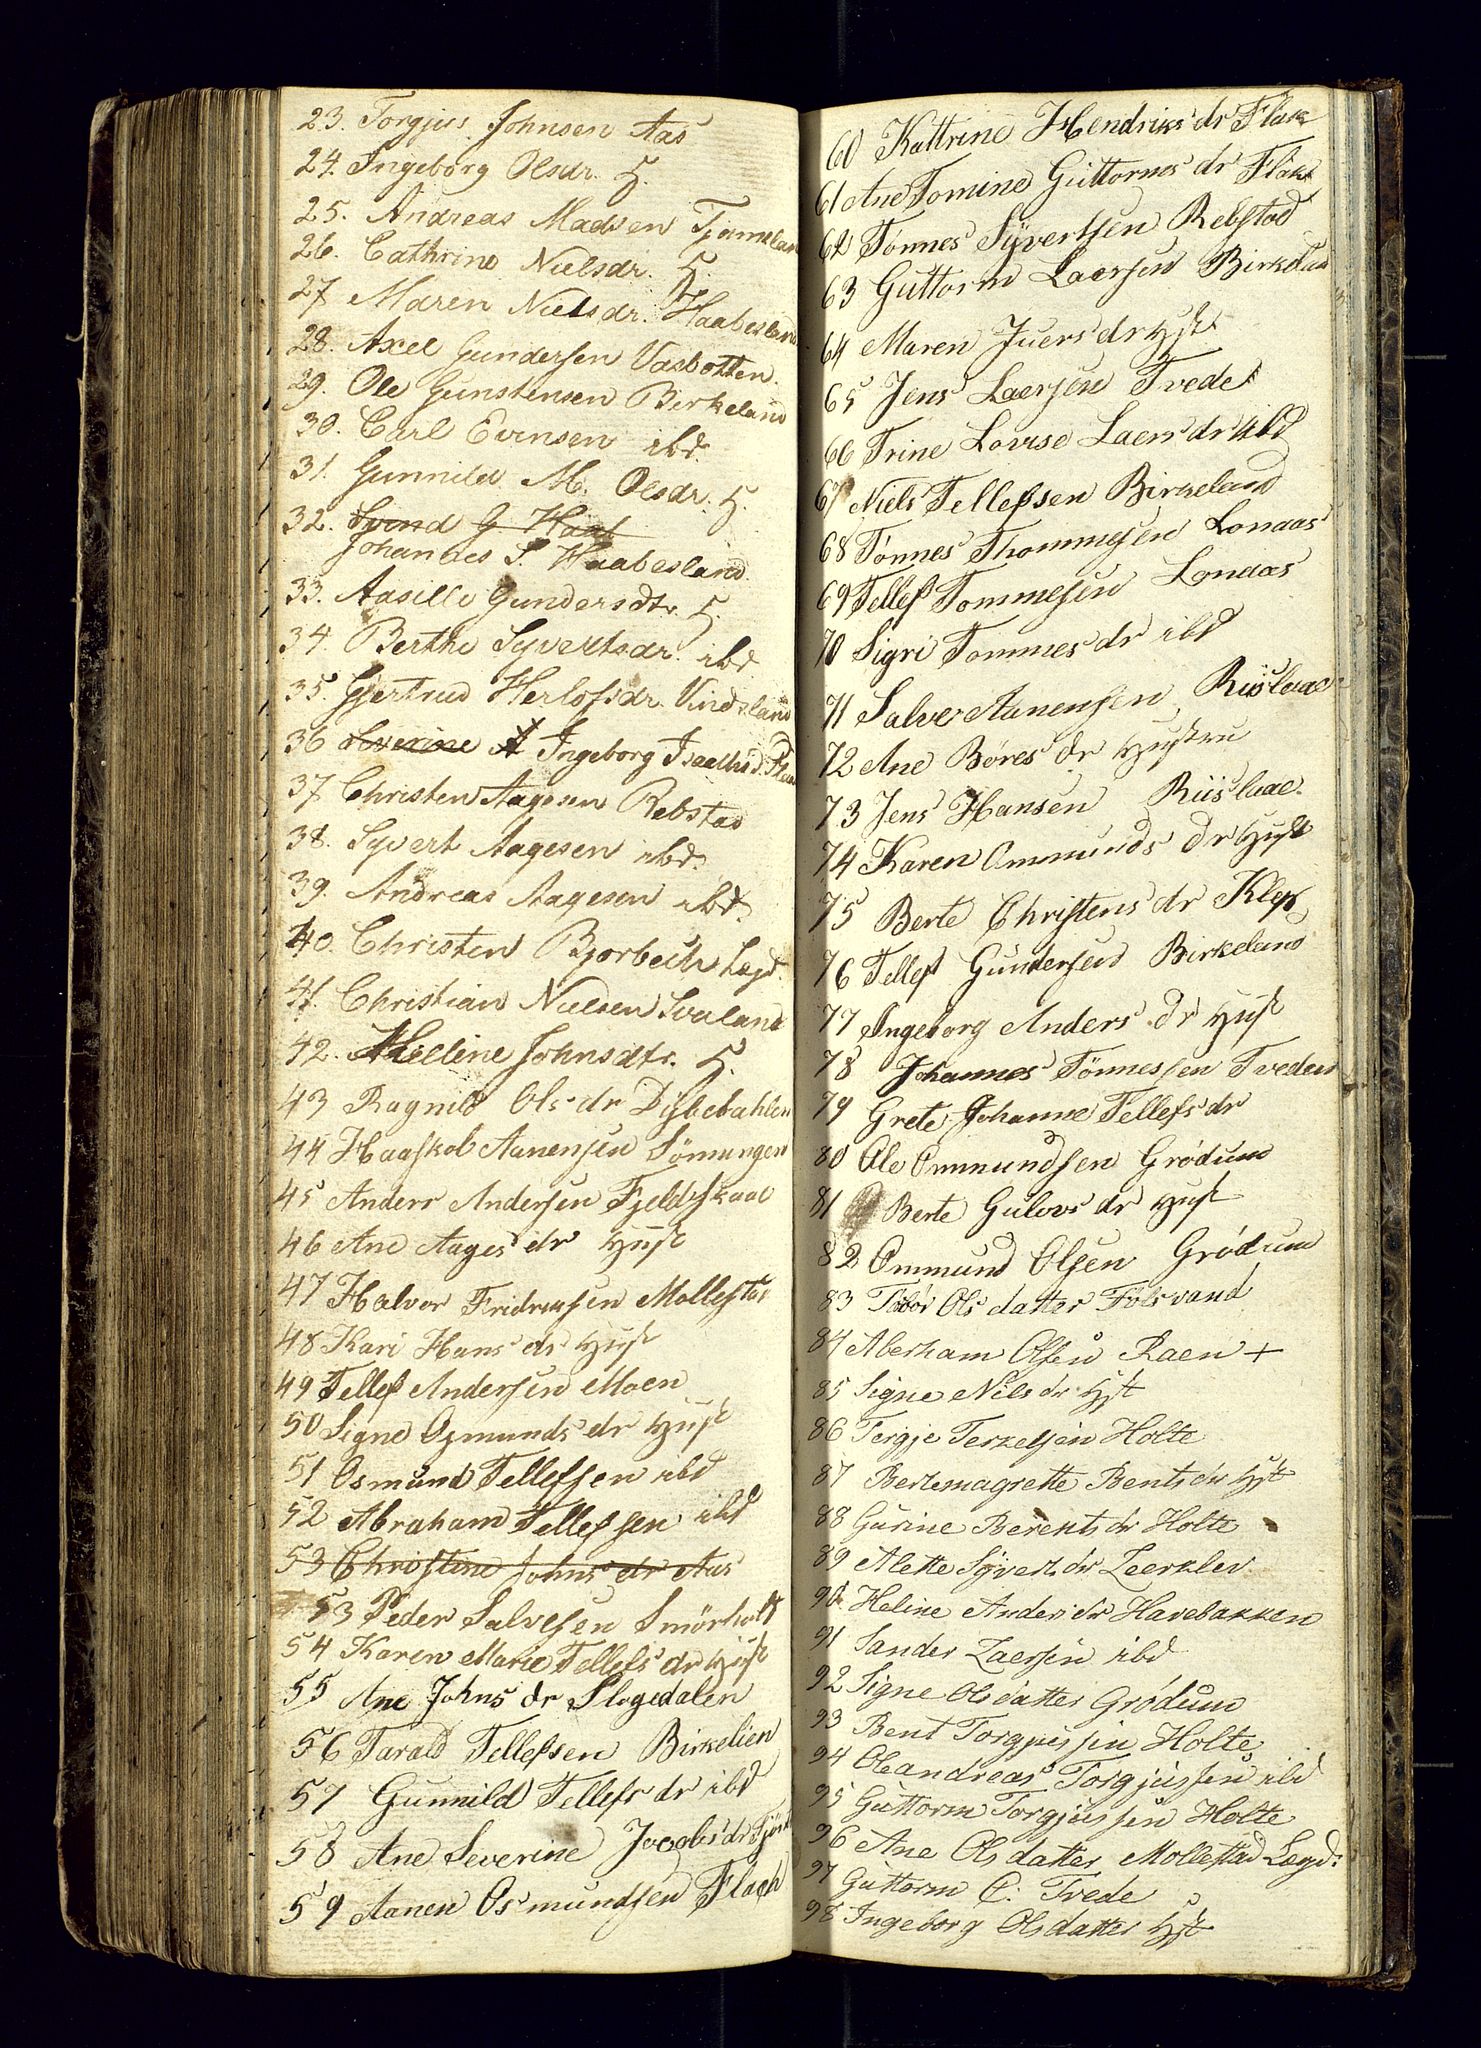 23. Torgjus Johnsen Aas
24. Ingeborg Olsdr. H.
25. Andreas Madsen Tjomeland
26. Cathrine Nielsdr. H.
27 Maren Nielsdr. Haabesland
28. Axel Gundersen Vasbotten.
29. Ole Gunstensen Berkeland
30. Carl Evensen ibd.
31. Gunnild M. Olsdr. H.
32. Svend G. Haab
Johannes S. Haabesland.
33. Aasille Gundersdtr. H.
34. Berthe Syvertsdr. ibd
35. Gjertrud Herlofsdr. Vindsland
36 Severine A Ingeborg
37 Christen Aagesen Rebstad
38. Syvert Aagesen ibd.
39. Andreas Aagesen ibd.
40. Christen Bjorbech Legd.
41. Christian Nielsen Svaland
42. Helline Johnsdtr. H.
43 Ragnild Ols dr Dybebahlen
44 Haaskol Aanensen Sömingen
45 Anders Andersen Fjeldskaae
46 Ane Aages dr Hust
47 Halvor Fridrensen Mollestad
48 Kari Hans dr Hust
49 Tellef Andersen Moen
50 Signe Osmunds dr Hust
51 Osmund Tellefsen ibd
52 Abraham Tellefsen ibd
53 Christine Johns dr Aas
53 Peder Salvesen Smörholt
54 Karen Marie Tellefs dr Hust
55 Ane Johns dr Slogedalen
56 Tarald Tellefsen Birkelien
57 Gunnild Tellefs dr ibd
58 Ane Severine Jacobs dr
59 Aanen Osmundsen Flach
60 Kattrine Hendriks dr Flak
61 Ane Tomine Guttorms dr Flak
62 Tönnes Syvertsen Rebstad
63 Guttorm Laersen Birkeland
64 Maren Juers dr Hst
65 Jens Laersen Tvede
66 Trine Lovise Laers dr ibd
67 Niels Tellefsen Birkeland
68 Tönnes Thommesen Lonaas
69 Tellef Tommesen Lonaas
70 Sigri Tommes dr ibd
71 Salve Aanensen Riislaae
72 Ane Böres dr Hustru
73 Jens Hansen Riislaae.
74 Karen Ommunds dr Hust
75 Berte Christens dr Klep
76 Tellef Gundersen Birkeland
77 Ingeborg Anders dr Hust
78 Johannes Tönnessen Tveden
79 Grete Johanne Tellefs dr
80 Ole Ommundsen Grödum
81 Berte Gulovs dr Hust
82 Ommund Olsen Grödum
83 Tobör Ols datter Fölsvand
84 Aberham Olsen Raen +
85 Signe Nils dr Hst
86 Tergje Terkelsen Holte
87 Bertemagrette Bents dr Hst
88 Gurine Berents dr Holte
89 Alette Syverts dr Leerklev
90. Heline Anders dr Havebakken
91 Sander Laersen ibd
92 Signe Olsdatter Grödum
93 Bent Torgjussen Holte
94 Oleandreas Torgjussen ibd
95 Guttorm Torgjussen Holte
96 Ane Olsdatter Mollestad Legd:
97 Guttorm C. Tvede
98 Ingeborg Olsdatter Hst